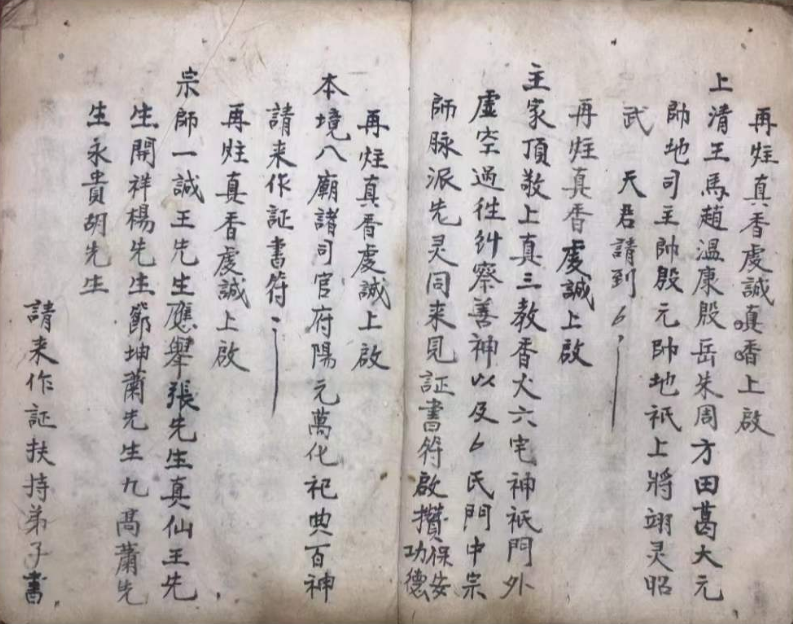 再炷真香虔誠真香上啟
上清王馬趙溫康殷岳朱周方田葛大元
帥地司主帥殷元帥地祇上將翊灵昭
武　天君請到ム
再炷真香虔誠上啟
主家頂敬上真三教香火六宅神祇門外
虛空過徃糾察善神以及ム氏門中宗
師脉派先灵同来見証書符啟攢保安功德
再炷真香虔誠上啟
本境八廟諸司官府陽元萬化祀典百神
請来作証書符
再炷真香虔誠上啟
宗師一誠王先生應舉張先生真仙王先
生開祥楊先生節坤蕭先生九高蕭先
生永貴胡先生
請来作証扶持弟子書